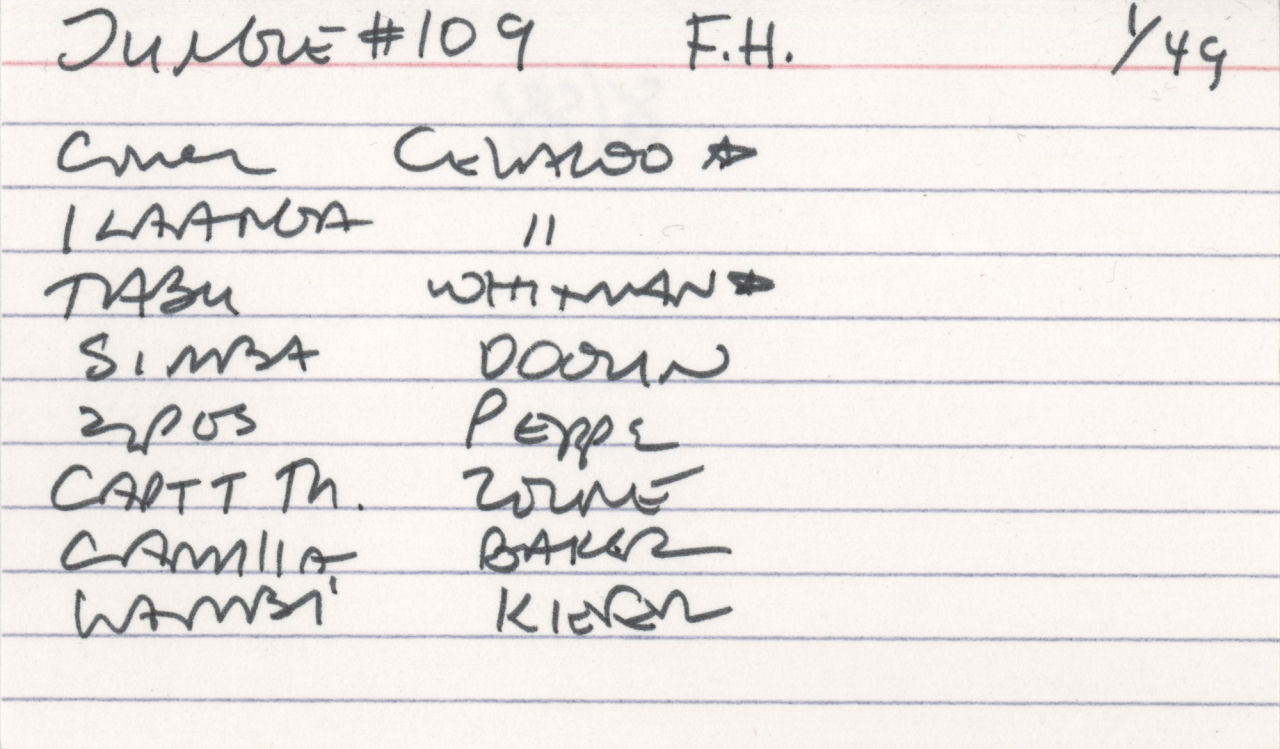 JUNGLE #109 F.H. 1/49
Cover CELARDO ★
1 KAANGA "
TABU WHITMAN ★
SIMBA DOOLIN
2 pos PEPPE
CAPT T Th. ZOLNE
CAMILLA BAKER
WAMBI KIEFER